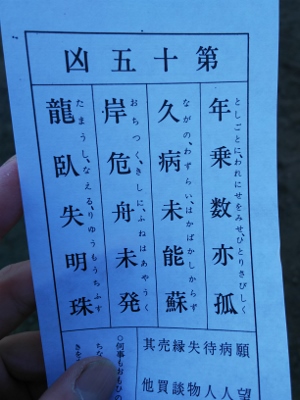 第十五凶
年乗数亦孤
としごとに、われにせをみせ、ひとりさびしく
久病未能蘇
ながの、わずらい、はかばかしからず
岸危舟未発
おちつく、きしに、ふねはあやうく
龍臥失明珠
たまうしなえる、りゅうもうちふす
願望
病人
待人
失物
縁談
売買
其他
○何事もおもひの